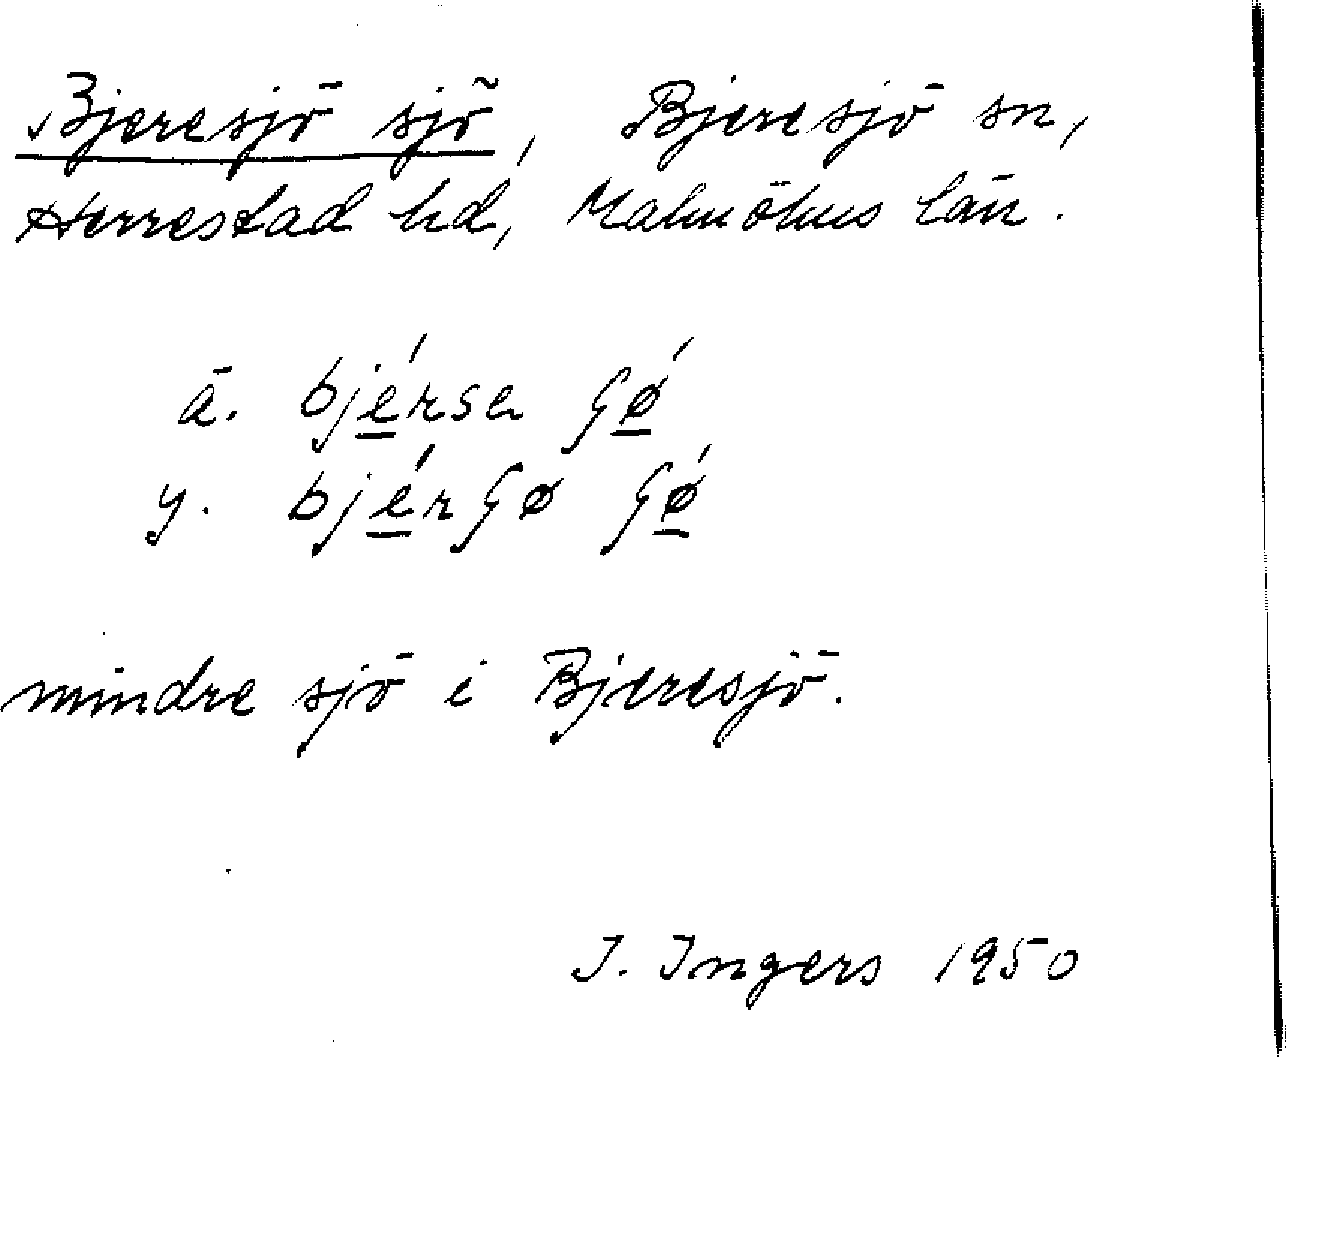 Bjeresjö sjö, Bjeresjö sn,
Herrestad hd, Malmöhus län.
ä. bjérsa ʃǿ
y. bjérʃø ʃǿ
mindre sjö i Bjeresjö.
I. Ingers 1950